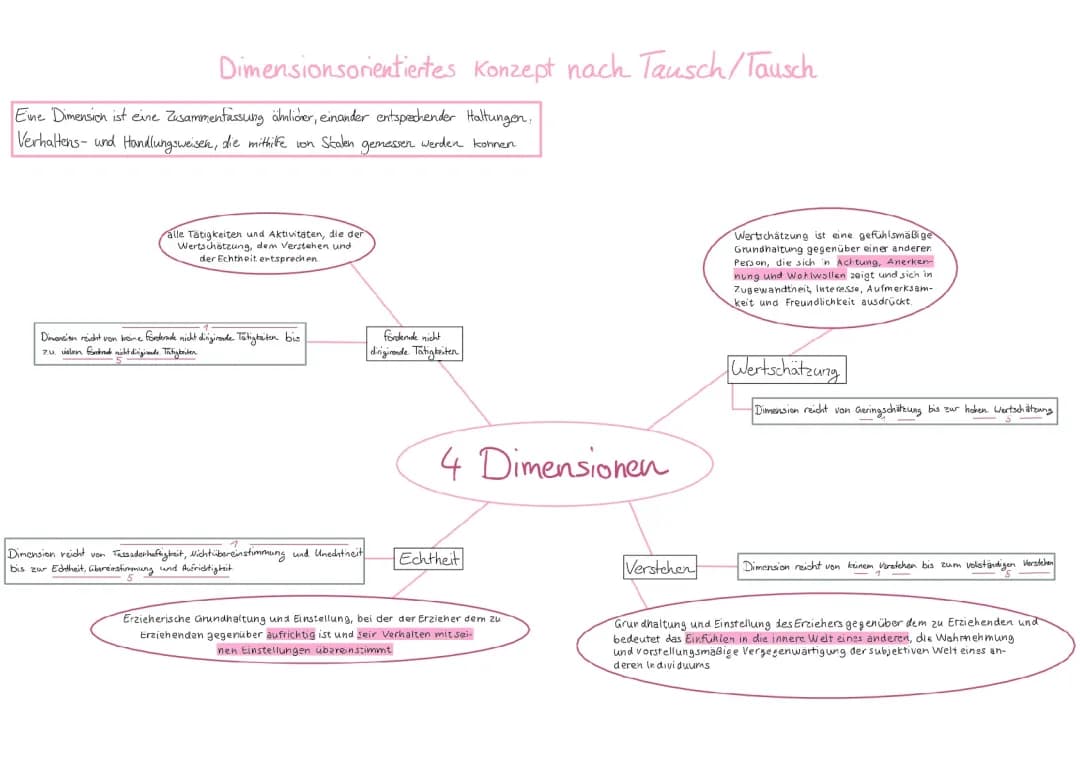 Dimensionsorientiertes Konzept nach Tausch/Tausch
Eine Dimension ist eine Zusammenfassung ähnlicher, einander entsprechender Haltungen,
Verhaltens- und Handlungsweisen, die mithilfe von Skalen gemessen werden können
alle Tätigkeiten und Aktivitäten, die der
Wertschätzung, dem Verstehen und
der Echtheit entsprechen.
1
Dimension reicht von keine fördernde nicht dirigierende Tätigkeiten bis
zu vielen fördernd nicht dirigierende Tätigkeiten
5
fördernde nicht
dirigierende Tätigkeiten
Wertschätzung ist eine gefühlsmäßige
Grundhaltung gegenüber einer anderen
Person, die sich in Achtung, Anerken-
nung und Wohlwollen zeigt und sich in
Zugewandtheit, Interesse, Aufmerksam-
keit und Freundlichkeit ausdrückt.
Wertschätzung
Dimension reicht von Geringschätzung bis zur hohen Wertschätzung
1 5
4 Dimensionen
1
Dimension reicht von Fassadenhaftigkeit, Nichtübereinstimmung und Unechtheit
bis zur Echtheit, Übereinstimmung und Aufrichtigkeit
5
Echtheit
Erzieherische Grundhaltung und Einstellung, bei der der Erzieher dem zu
Erziehenden gegenüber aufrichtig ist und sein Verhalten mit sei-
nen Einstellungen übereinstimmt
Verstehen
Dimension reicht von keinem Verstehen bis zum vollständigen Verstehen
1 5
Grundhaltung und Einstellung des Erziehers gegenüber dem zu Erziehenden und
bedeutet das Einfühlen in die innere Welt eines anderen, die Wahrnehmung
und vorstellungsmäßige Vergegenwärtigung der subjektiven Welt eines an-
deren Individuums